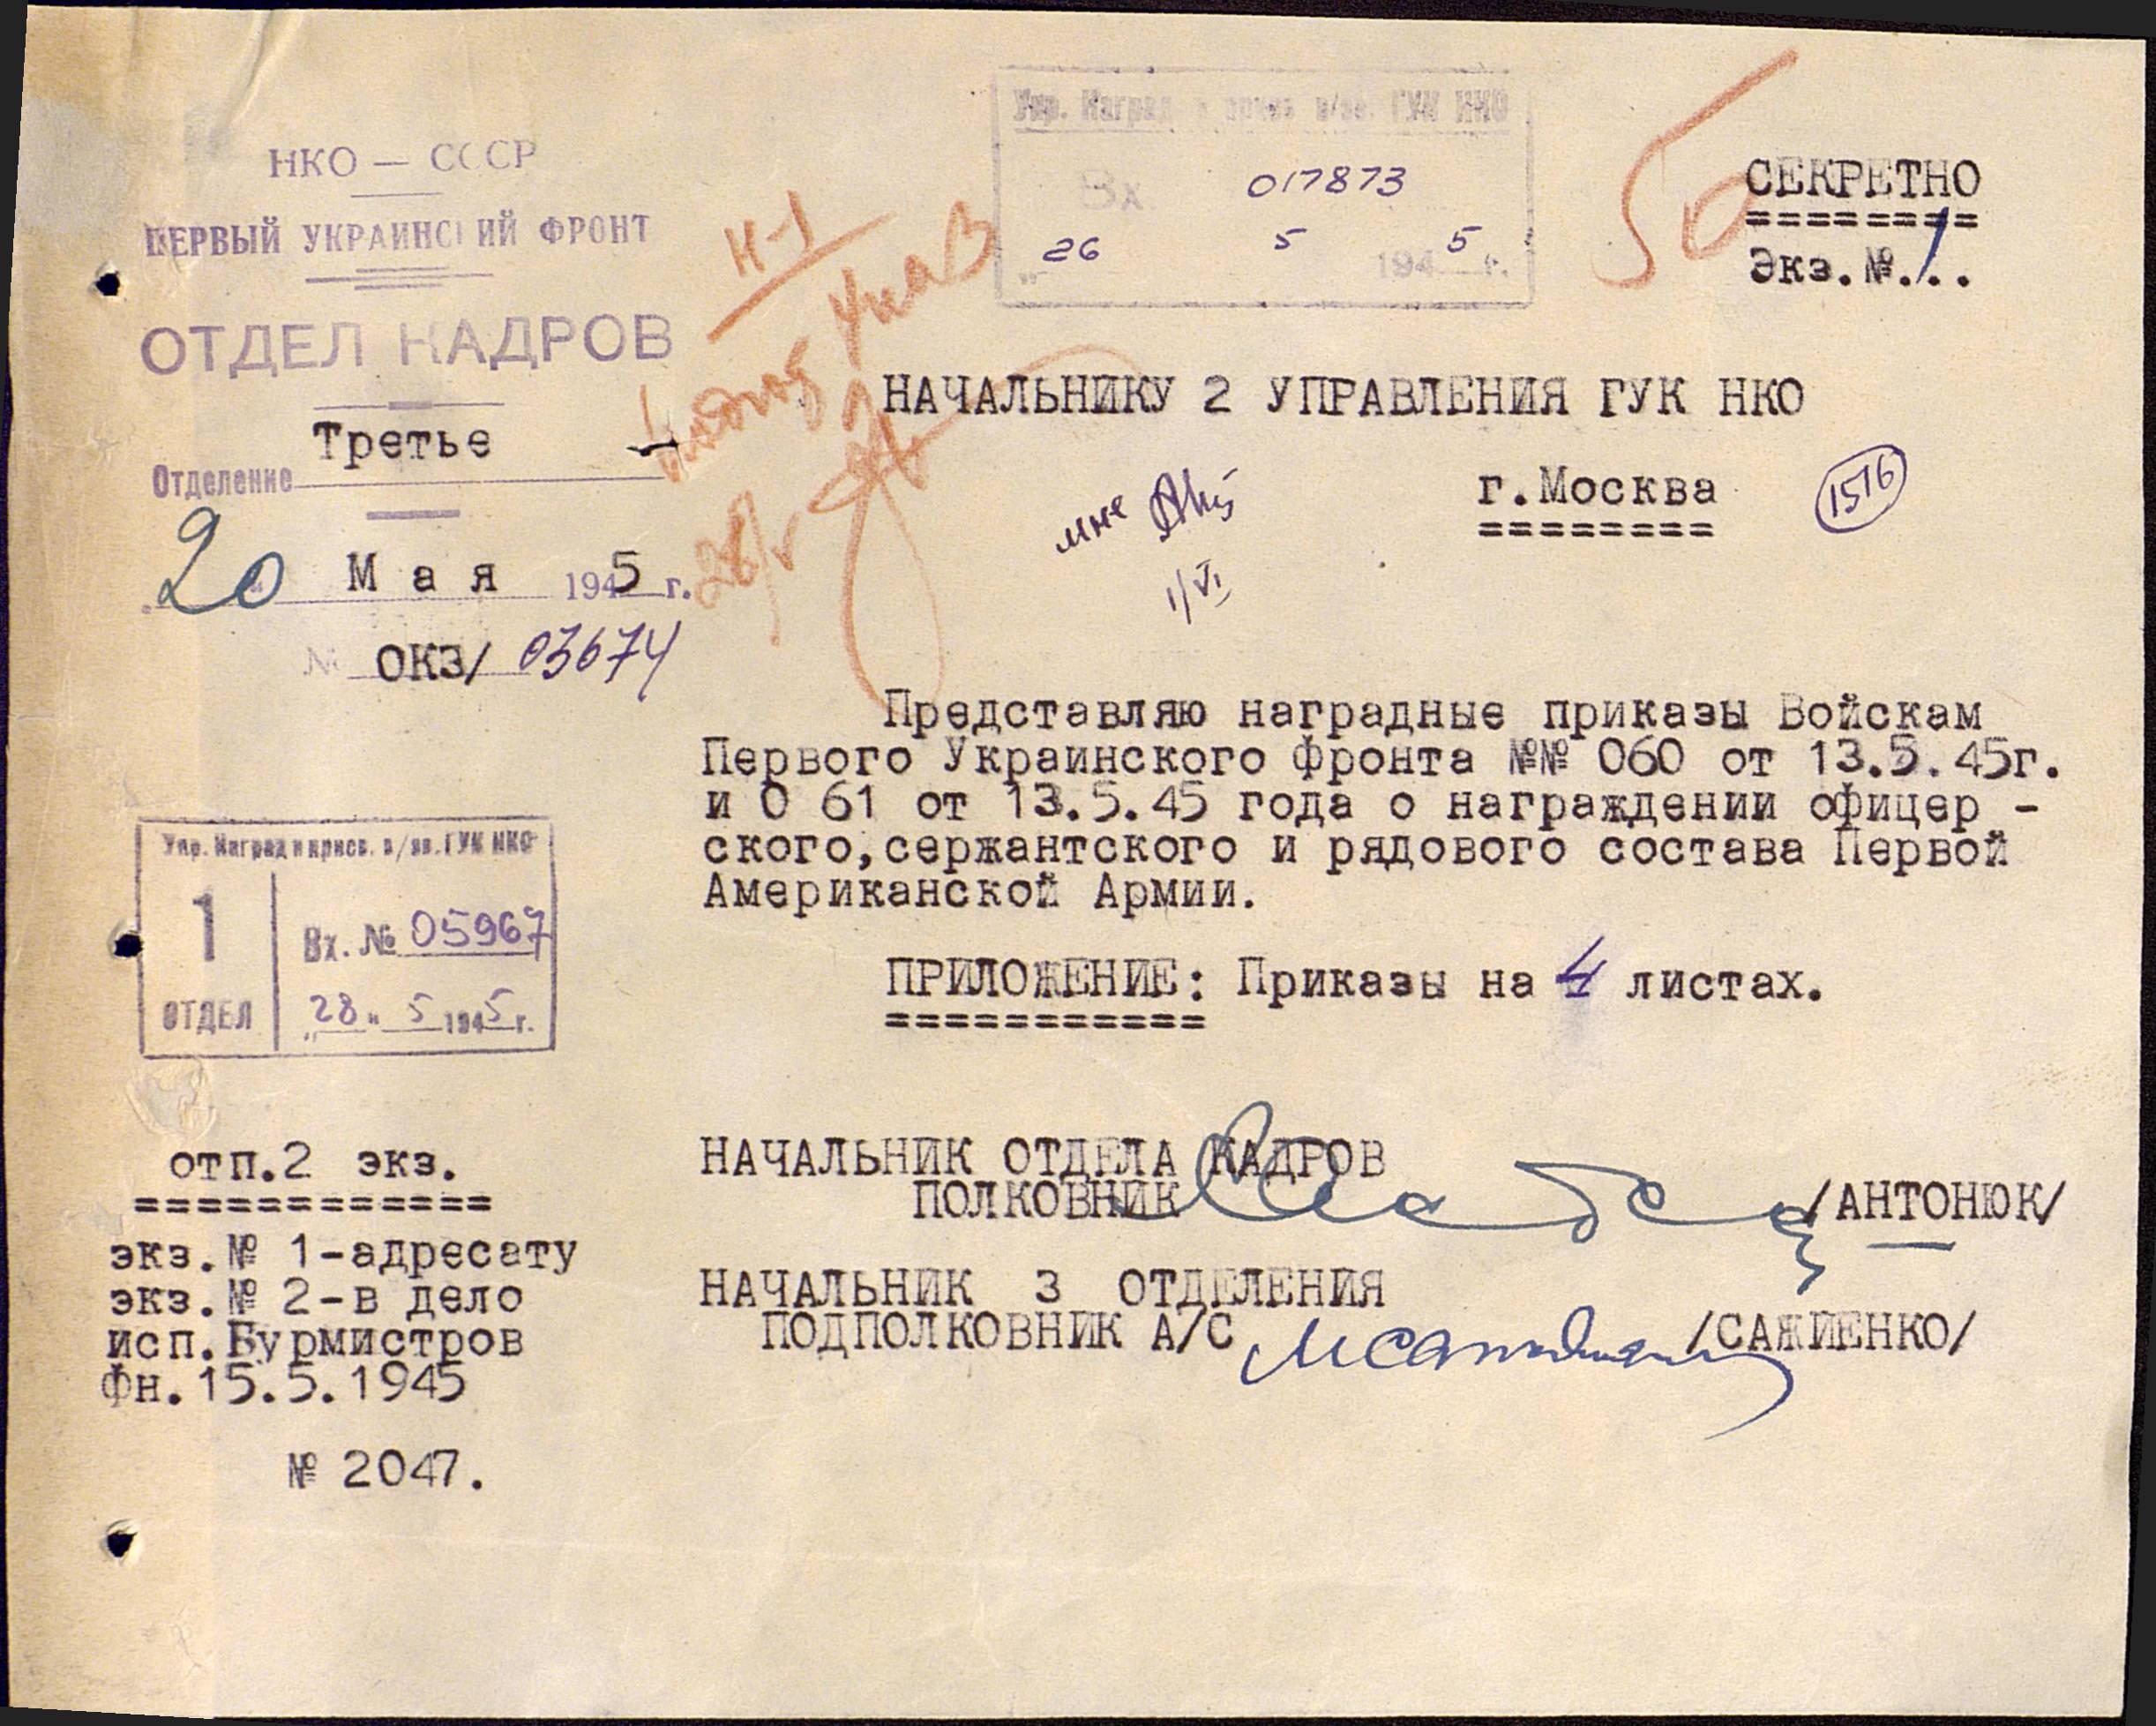 НКО — СССР
ПЕРВЫЙ УКРАИНСКИЙ ФРОНТ
ОТДЕЛ КАДРОВ
Третье
Отделение
20 Мая 1945 г.
№ ОКЗ/ 03674
Н-1
28/V
Упр. Наград и присв. в/зв. ГУК НКО
Вх 017873
„26 5 1945 г.
50
СЕКРЕТНО
========
Экз.№ 1...
НАЧАЛЬНИКУ 2 УПРАВЛЕНИЯ ГУК НКО
г.Москва
========
1516
мне
1/VI
Представляю наградные приказы Войскам
Первого Украинского фронта №№ 060 от 13.5.45г.
и 0 61 от 13.5.45 года о награждении офицер -
ского,сержантского и рядового состава Первой
Американской Армии.
ПРИЛОЖЕНИЕ: Приказы на 4 листах.
===========
Упр. Наград и присв. в/зв. ГУК НКО
1
ОТДЕЛ
Вх. № 05967
„28" 5 1945 г.
НАЧАЛЬНИК ОТДЕЛА КАДРОВ
ПОЛКОВНИК /АНТОНЮК/
НАЧАЛЬНИК 3 ОТДЕЛЕНИЯ
ПОДПОЛКОВНИК А/С /САЖИЕНКО/
отп.2 экз.
============
экз.№ 1-адресату
экз.№ 2-в дело
исп.Бурмистров
Фн.15.5.1945
№ 2047.